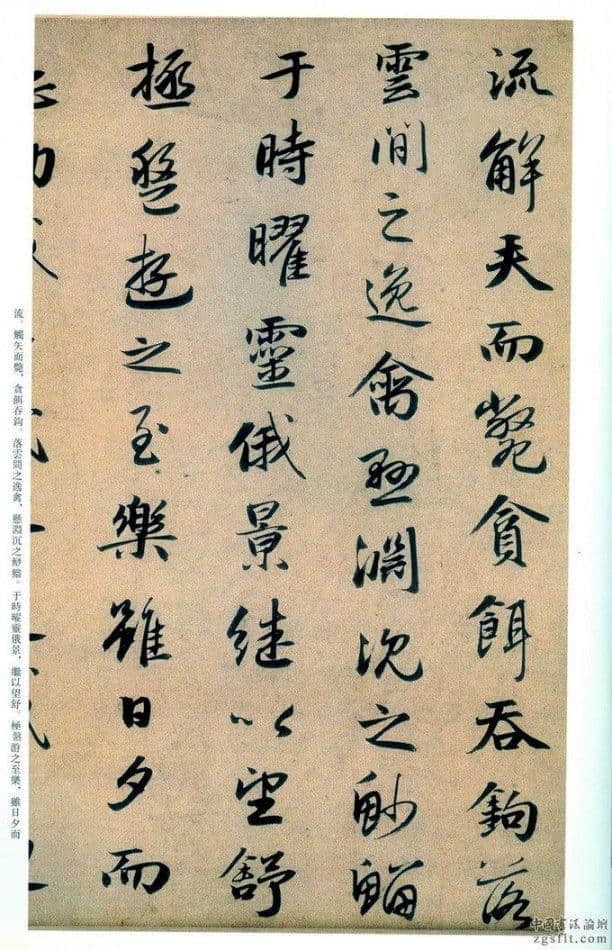 流觸矢而斃貪餌吞鉤落
雲間之逸禽懸淵沉之魦鰡
于時曜靈俄景継以望舒
極盤遊之至樂雖日夕而
流。觸矢而斃，貪餌吞鉤。落雲間之逸禽，懸淵沉之魦鰡。于時曜靈俄景，繼以望舒。極盤游之至樂，雖日夕而
中國書法論壇
zgsflt.com